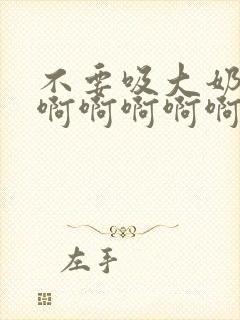 不要吸大奶
啊啊啊啊啊
左手